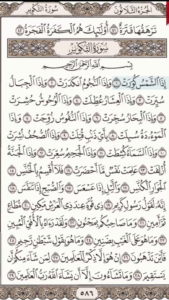 الجُزْءُ الثَّلَاثُونَ سُورَةُ التَّكْوِيرِ
تَرْهَقُهَا قَتَرَةٌ ٤١ أُوْلَٰٓئِكَ هُمُ ٱلْكَفَرَةُ ٱلْفَجَرَةُ ٤٢
سُورَةُ التَّكْوِيرِ
بِسْمِ ٱللَّهِ ٱلرَّحْمَٰنِ ٱلرَّحِيمِ
إِذَا ٱلشَّمْسُ كُوِّرَتْ ١ وَإِذَا ٱلنُّجُومُ ٱنكَدَرَتْ ٢ وَإِذَا ٱلْجِبَالُ
سُيِّرَتْ ٣ وَإِذَا ٱلْعِشَارُ عُطِّلَتْ ٤ وَإِذَا ٱلْوُحُوشُ حُشِرَتْ
٥ وَإِذَا ٱلْبِحَارُ سُجِّرَتْ ٦ وَإِذَا ٱلنُّفُوسُ زُوِّجَتْ ٧ وَإِذَا
ٱلْمَوْءُۥدَةُ سُئِلَتْ ٨ بِأَيِّ ذَنۢبٍ قُتِلَتْ ٩ وَإِذَا ٱلصُّحُفُ نُشِرَتْ
١٠ وَإِذَا ٱلسَّمَآءُ كُشِطَتْ ١١ وَإِذَا ٱلْجَحِيمُ سُعِّرَتْ ١٢ وَإِذَا ٱلْجَنَّةُ
أُزْلِفَتْ ١٣ عَلِمَتْ نَفْسٌ مَّآ أَحْضَرَتْ ١٤ فَلَآ أُقْسِمُ بِٱلْخُنَّسِ ١٥
ٱلْجَوَارِ ٱلْكُنَّسِ ١٦ وَٱلَّيْلِ إِذَا عَسْعَسَ ١٧ وَٱلصُّبْحِ إِذَا تَنَفَّسَ ١٨
إِنَّهُۥ لَقَوْلُ رَسُولٍ كَرِيمٍ ١٩ ذِى قُوَّةٍ عِندَ ذِى ٱلْعَرْشِ مَكِينٍ ٢٠ مُّطَاعٍ
ثَمَّ أَمِينٍ ٢١ وَمَا صَاحِبُكُم بِمَجْنُونٍ ٢٢ وَلَقَدْ رَءَاهُ بِٱلْأُفُقِ ٱلْمُبِينِ
٢٣ وَمَا هُوَ عَلَى ٱلْغَيْبِ بِضَنِينٍ ٢٤ وَمَا هُوَ بِقَوْلِ شَيْطَٰنٍ رَّجِيمٍ ٢٥
فَأَيْنَ تَذْهَبُونَ ٢٦ إِنْ هُوَ إِلَّا ذِكْرٌ لِّلْعَٰلَمِينَ ٢٧ لِمَن شَآءَ مِنكُمْ أَن
يَسْتَقِيمَ ٢٨ وَمَا تَشَآءُونَ إِلَّآ أَن يَشَآءَ ٱللَّهُ رَبُّ ٱلْعَٰلَمِينَ ٢٩
٥٨٦